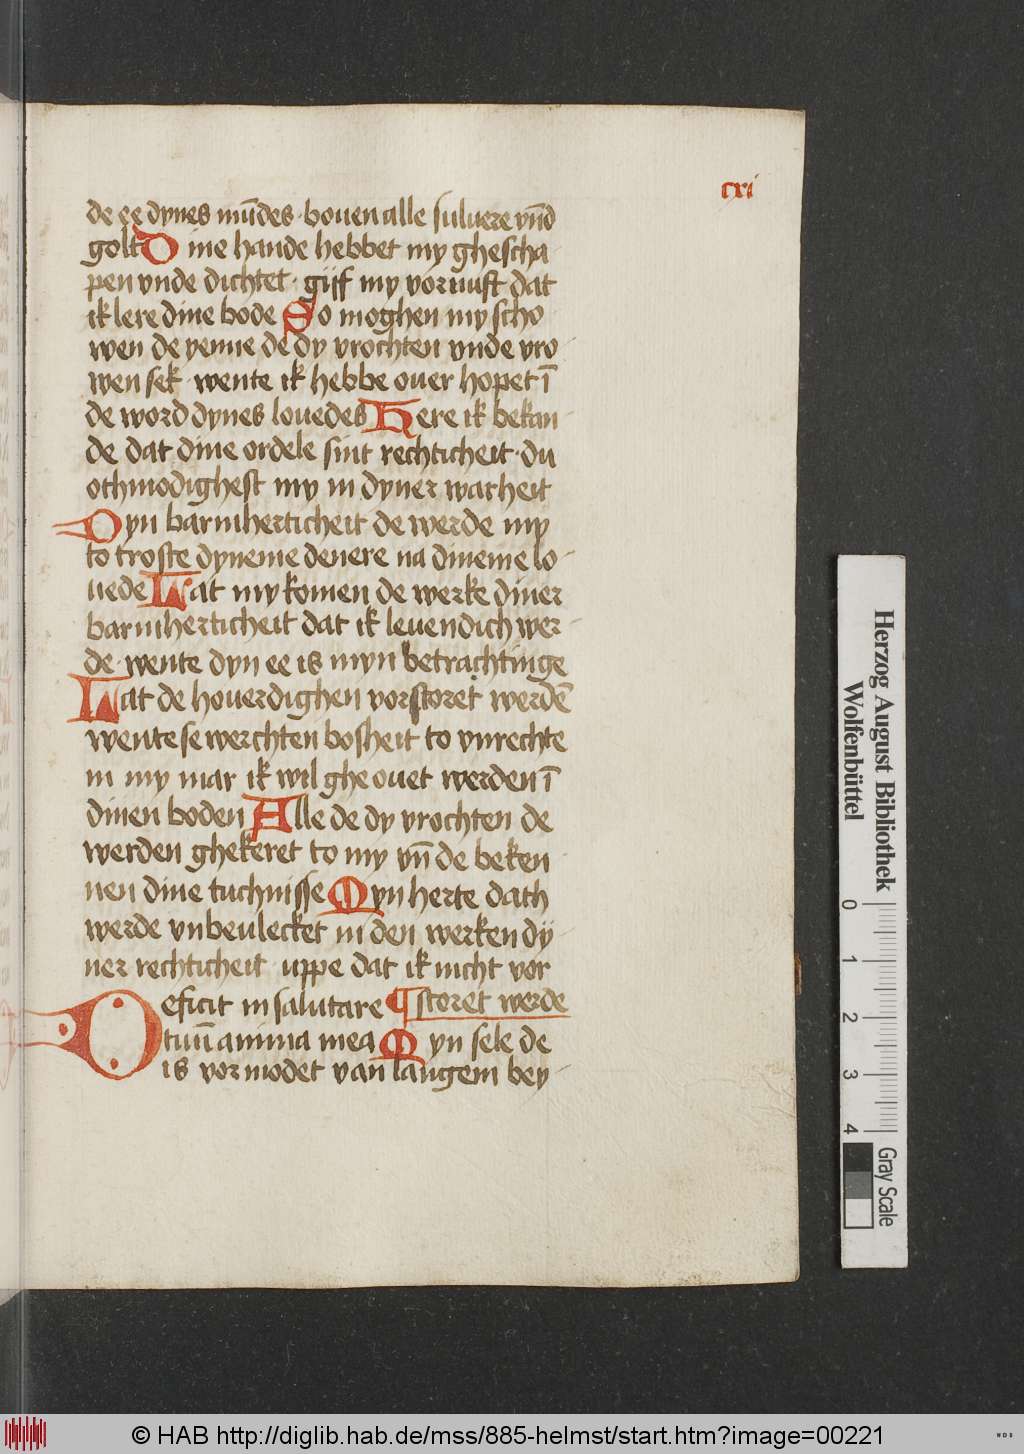 cxi
de ee dynes mūdes · bouen alle suluere vn̄d
golt D ine hande hebbet my ghescha
pen vnde dichtet · giff my vornuft dat
ik lere dine bode So moghen my scho
wen de yenne de dy vrochten vnde vro
wen sek · wente ik hebbe ouer hopet ī
de word dynes louedes Here ik bekan
de dat dine ordele sint rechticheit · du
othmodighest my in dyner warheit
Dyn barmherticheit de werde my
to troste dyneme denere na dineme lo
uede Lat my komen de werke diner
barmherticheit dat ik leuendich wer
de · wente dyn ee is myn betrachtinge
Lat de houerdighen vorstoret werdē
wente se werchten bosheit to vnrechte
in my mar ik wil gheouet werden ī
dinen boden Alle de dy vrochten de
werden ghekeret to my vn̄ de beken
nen dine tuchnisse Myn herte dath
werde vnbeulecket in den werken dy
ner rechticheit · uppe dat ik nicht vor
Deficit in salutare ¶ storet werde
tuū anima mea Myn sele de
is vormodet van langem bey
Herzog August Bibliothek
Wolfenbüttel
0 1 2 3 4
Gray Scale
© HAB http://diglib.hab.de/mss/885-helmst/start.htm?image=00221
WDB